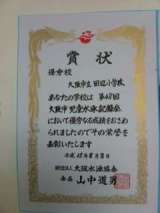 賞状
優会校
大阪市立 田辺小学校
あなたの学校は 第48回
大阪市児童水泳記録会
において優秀な成績をおさ
められましたのでその栄誉を
表彰いたします
平成15年8月8日
財団法人 大阪水泳協会
会長 山中道男